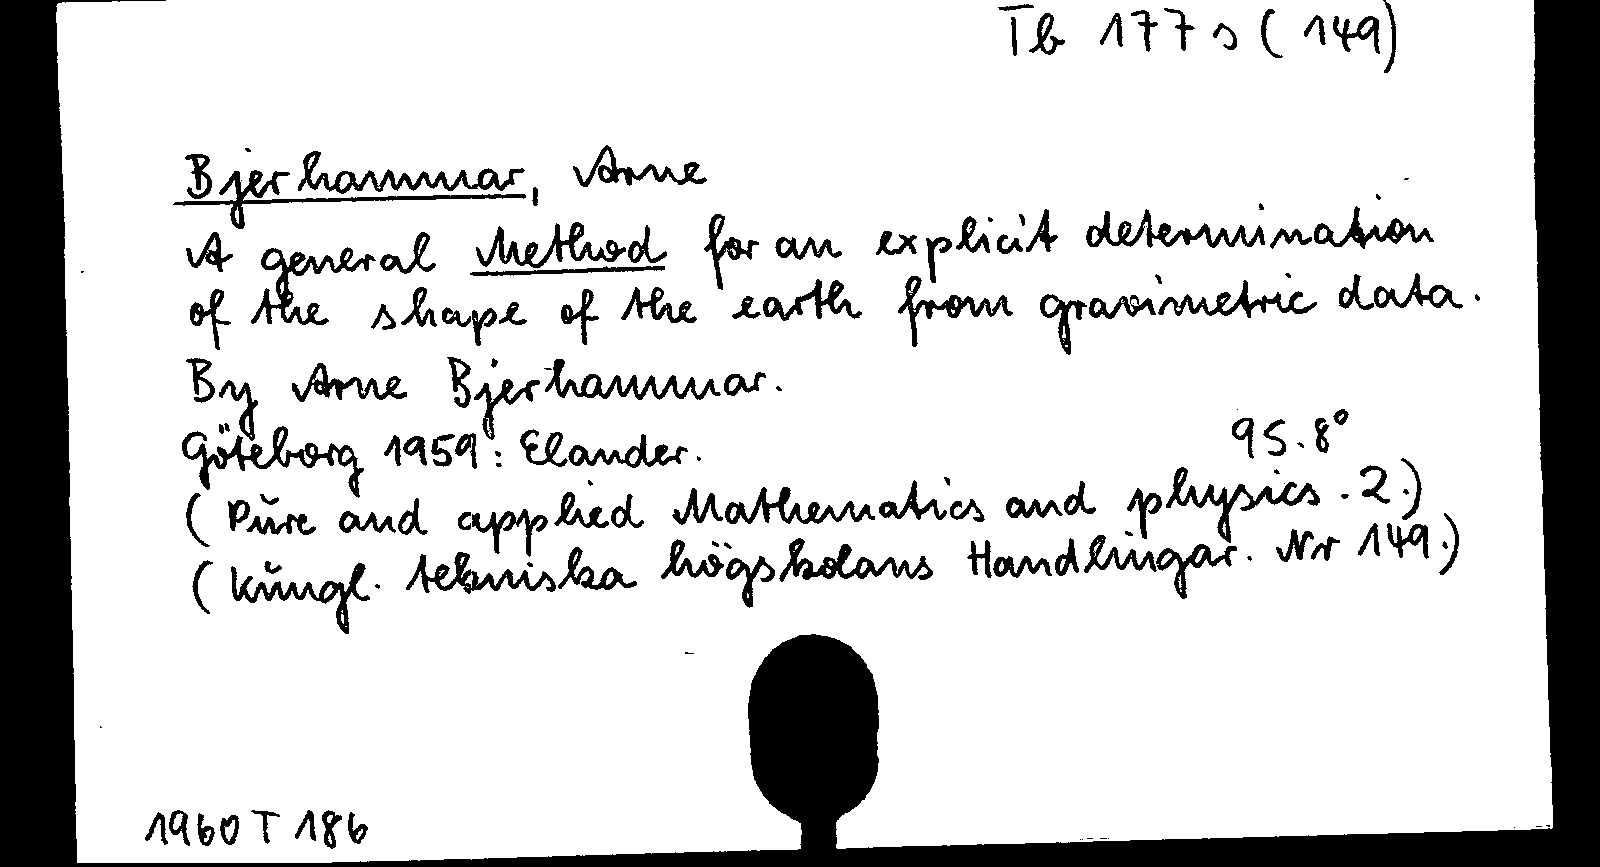 Tb 177 s (149)
Bjerhammar, Arne
A general Method for an explicit determination
of the shape of the earth from gravimetric data.
By Arne Bjerhammar.
Göteborg 1959: Elander. 95.8°
(Pure and applied Mathematics and physics. 2.)
(Kungl. tekniska högskolans Handlingar. Nr 149.)
1960 T 186